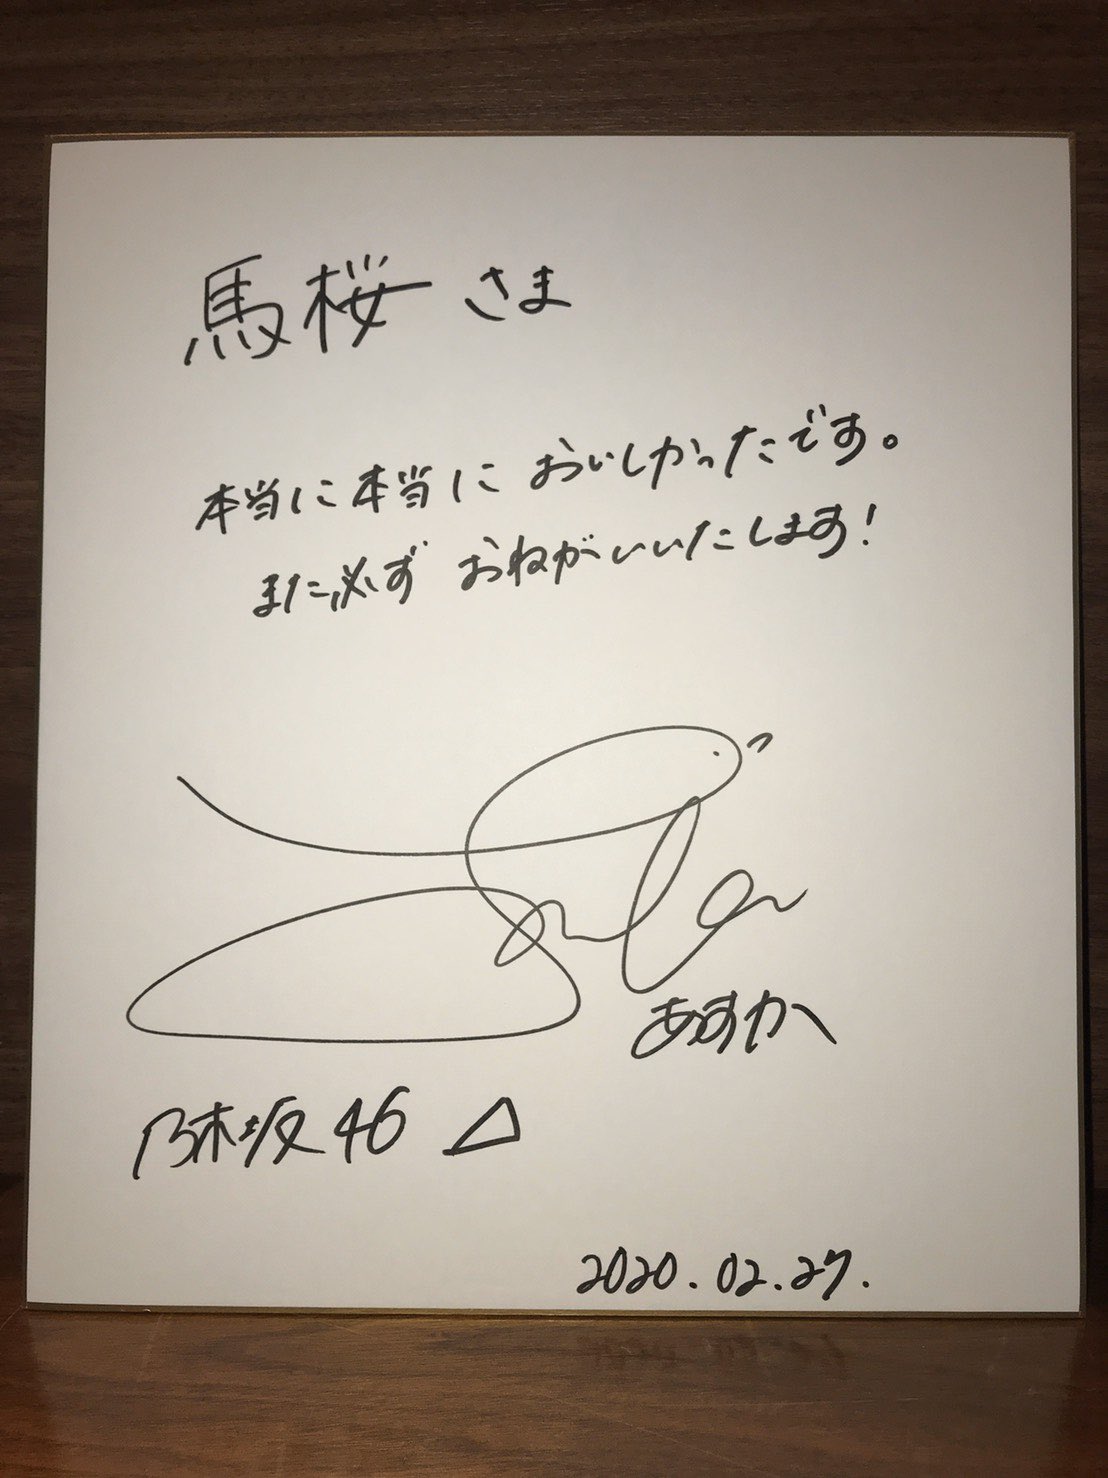 馬桜さま
本当に本当に おいしかったです。
また必ず おねがいいたします!
あすか
乃木坂46 △
2020.02.27.